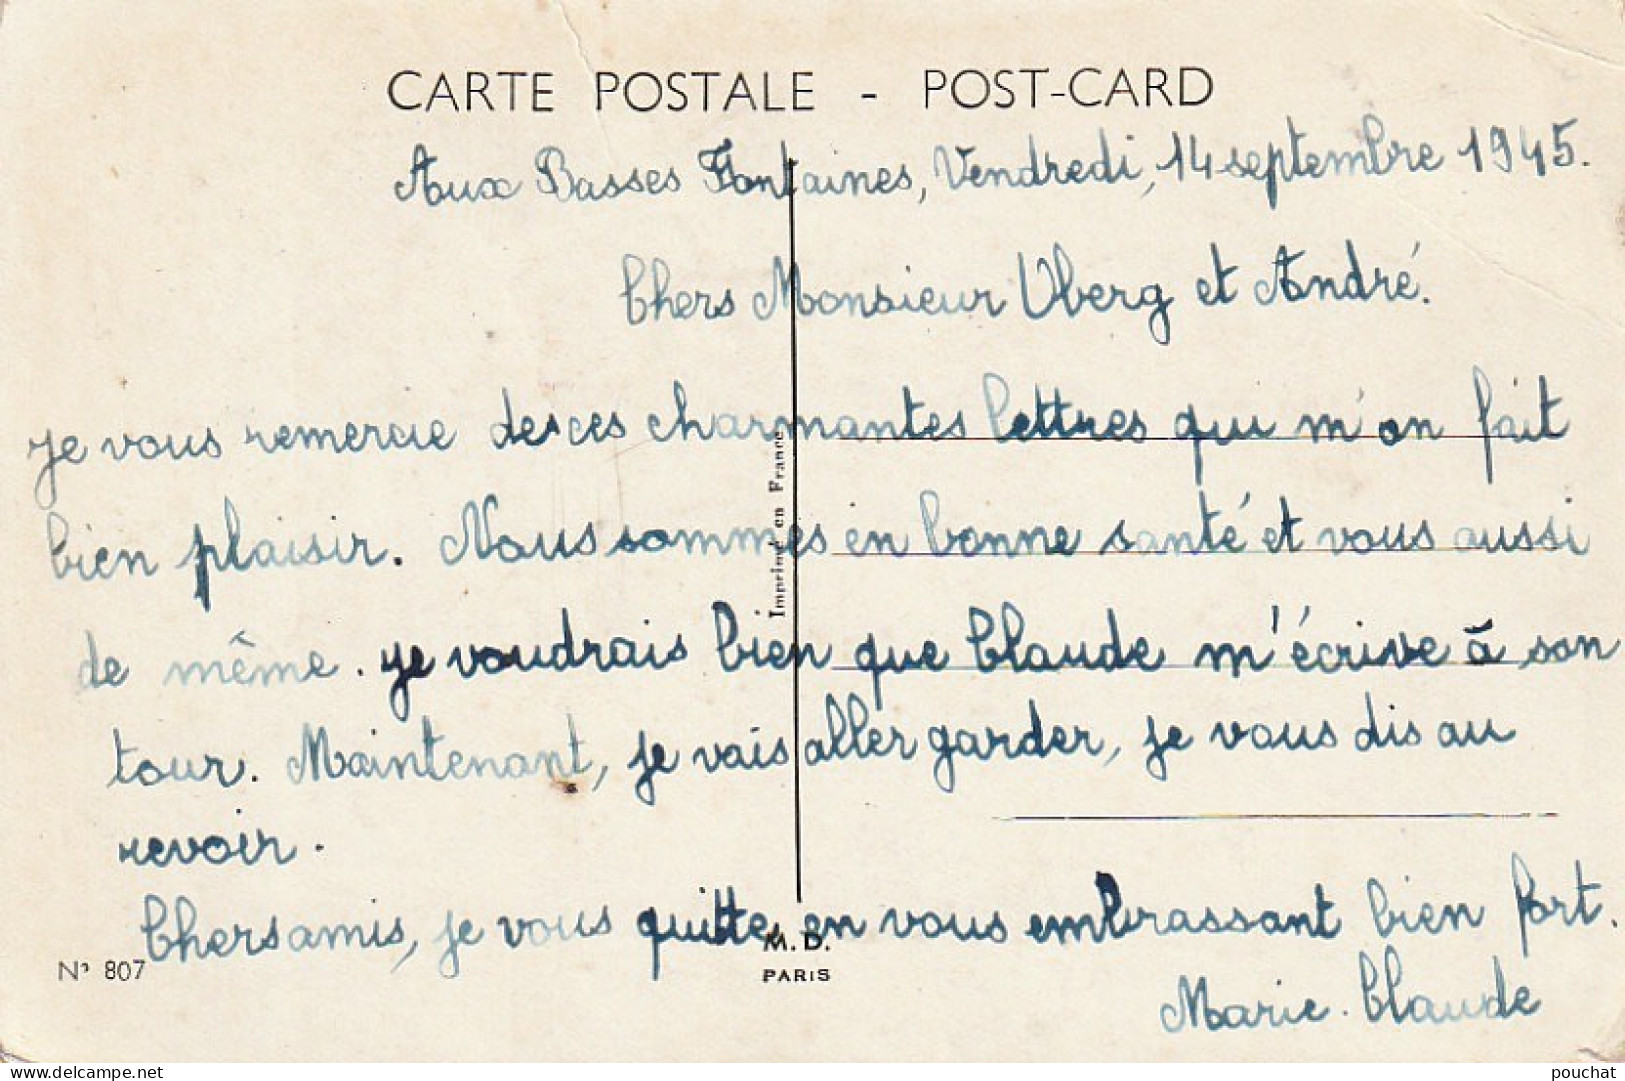 CARTE POSTALE - POST-CARD
Aux Basses Fontaines, Vendredi, 14 septembre 1945.
Chers Monsieur Uberg et André.
je vous remercie de ces charmantes lettres qui m'on fait
bien plaisir. Nous sommes en bonne santé et vous aussi
de même. je voudrais bien que Claude m'écrive à son
tour. Maintenant, je vais aller garder, je vous dis au
revoir.
Chers amis, je vous quitte en vous embrassant bien fort.
Marie-Claude
Imprimé en France
N° 807
M. D.
PARIS
www.delcampe.net
pouchat